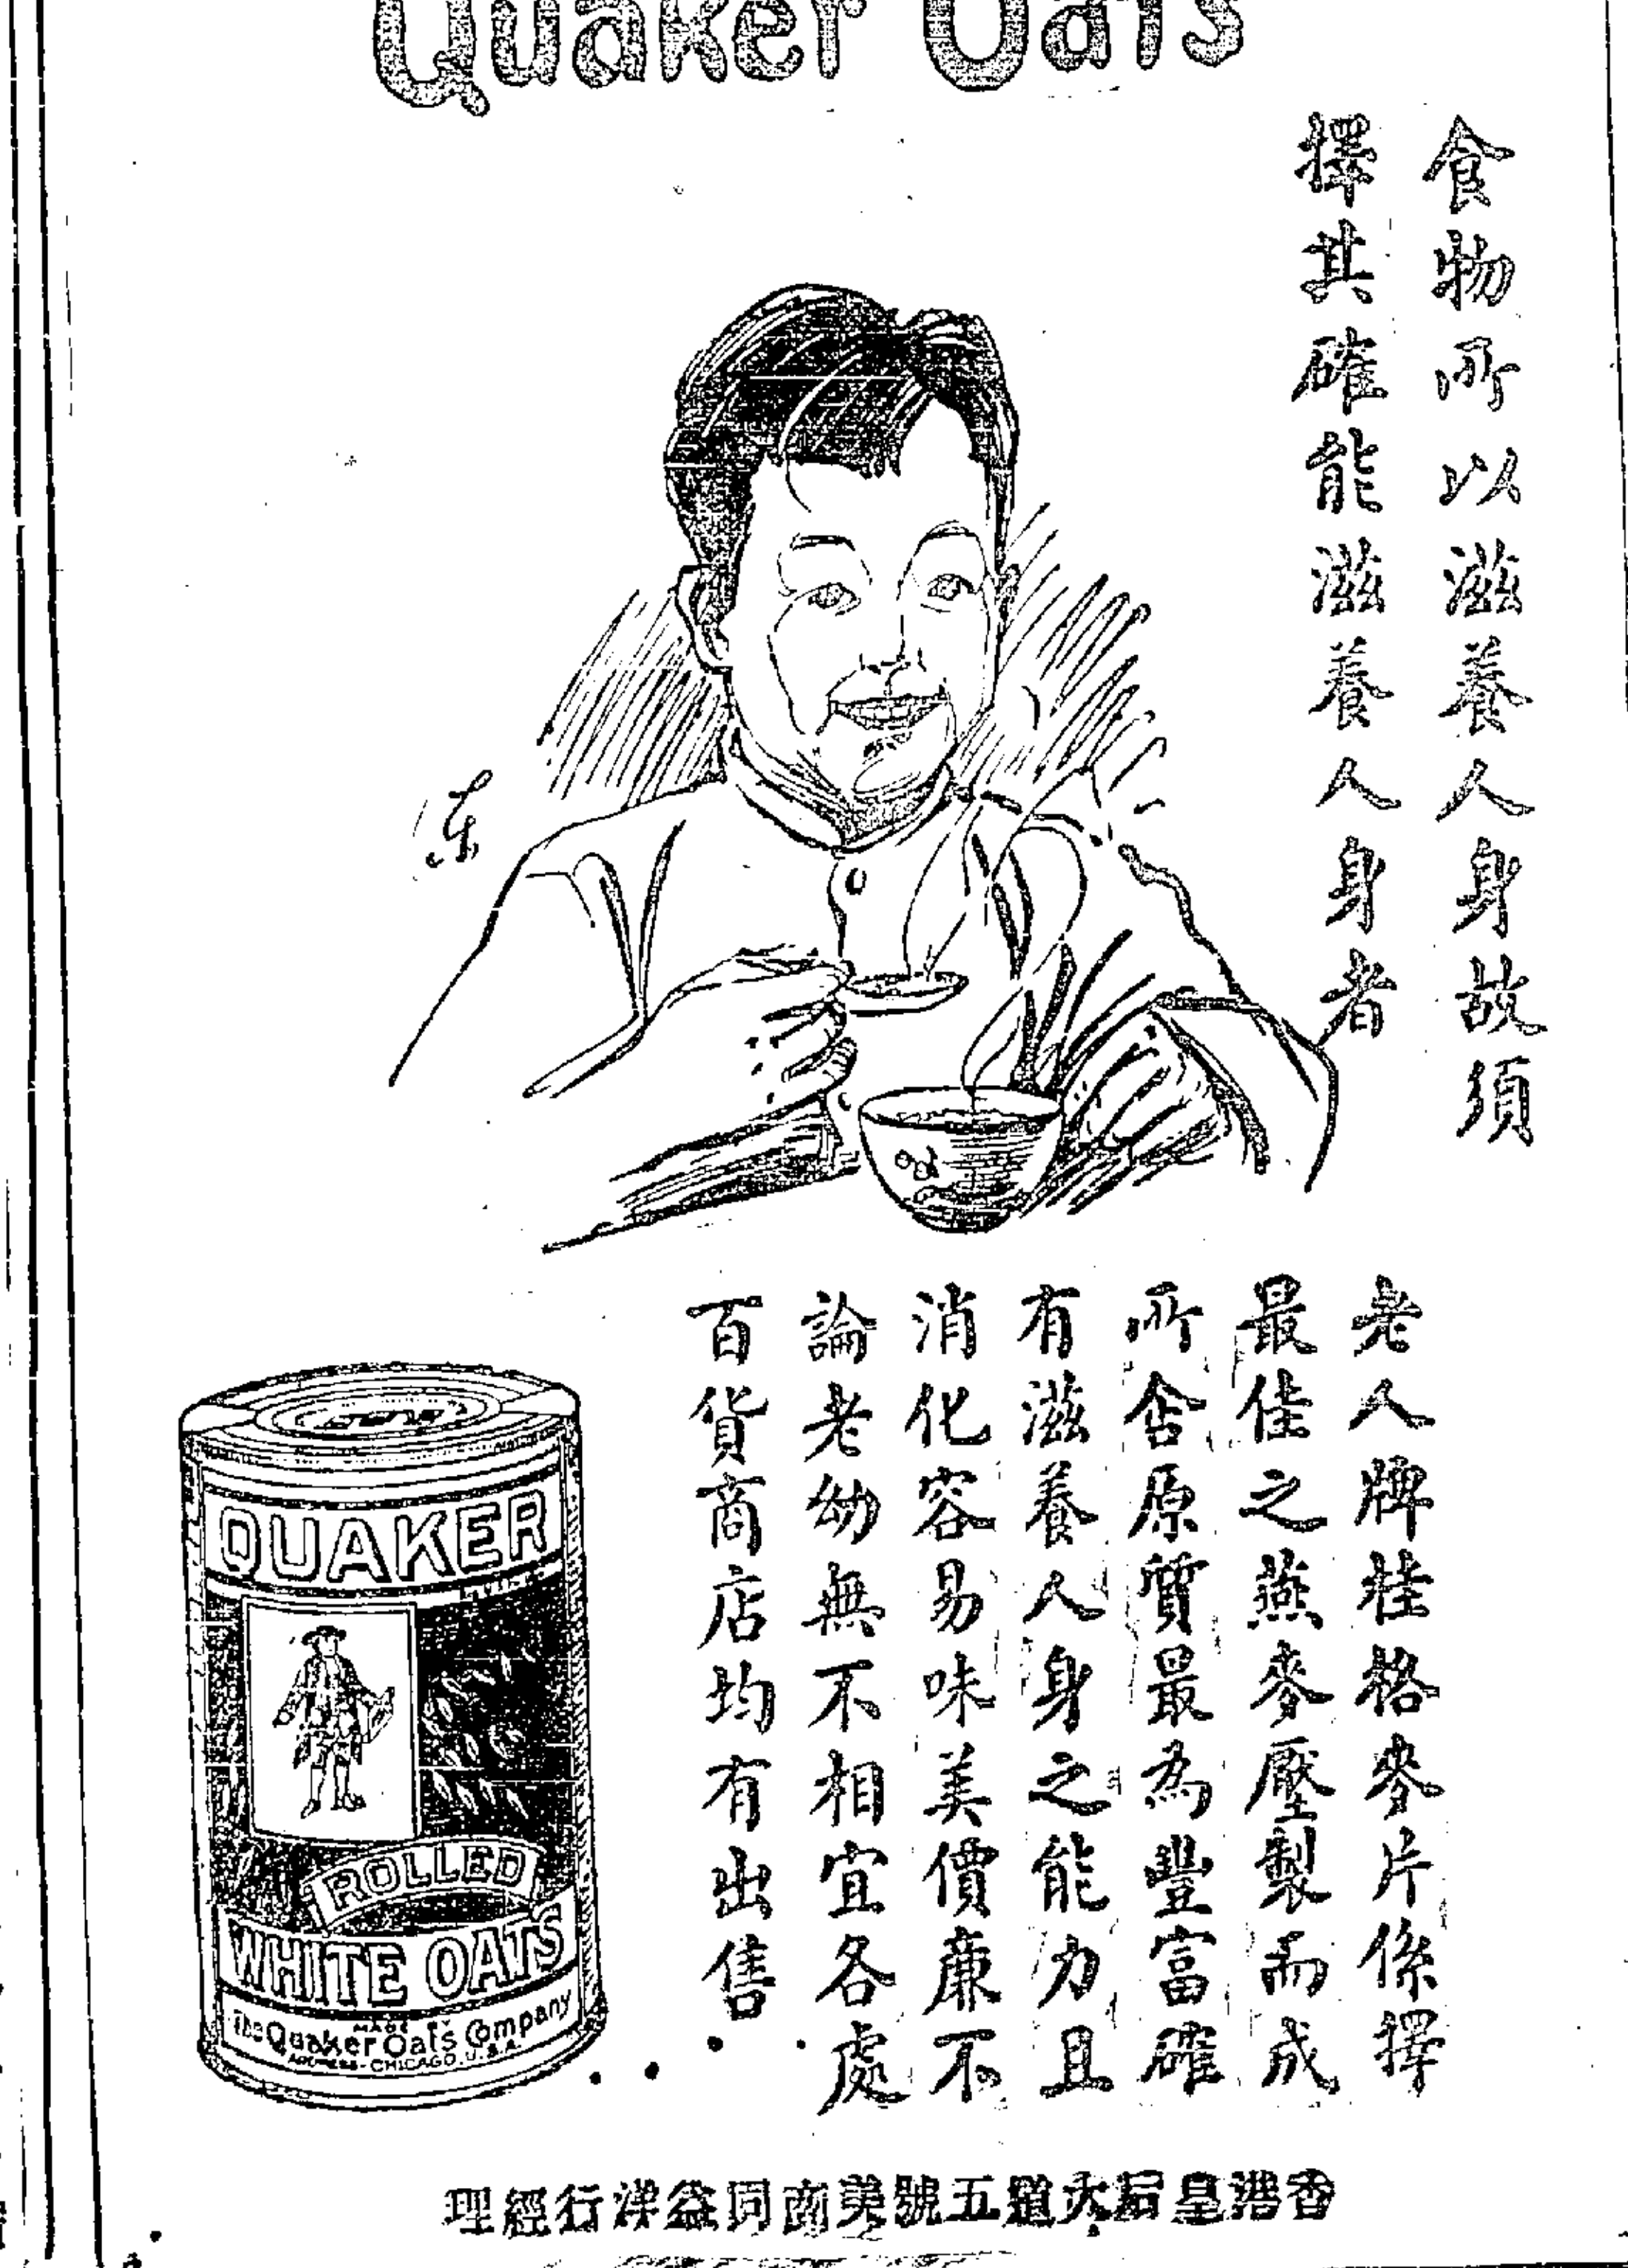 Quaker Oats
食物所以滋養人身故須
擇其確能滋養人身者
老人牌桂格麥片係擇
最佳之燕麥壓製而成
所含原質最為豐富確
有滋養人身之能力且
消化容易味美價廉不
論老幼無不相宜各處
百貨商店均有出售
QUAKER
ROLLED
WHITE OATS
MADE BY
The Quaker Oats Company
ADDRESS-CHICAGO.U.S.A.
香港皇后大道五號美商同益洋行經理